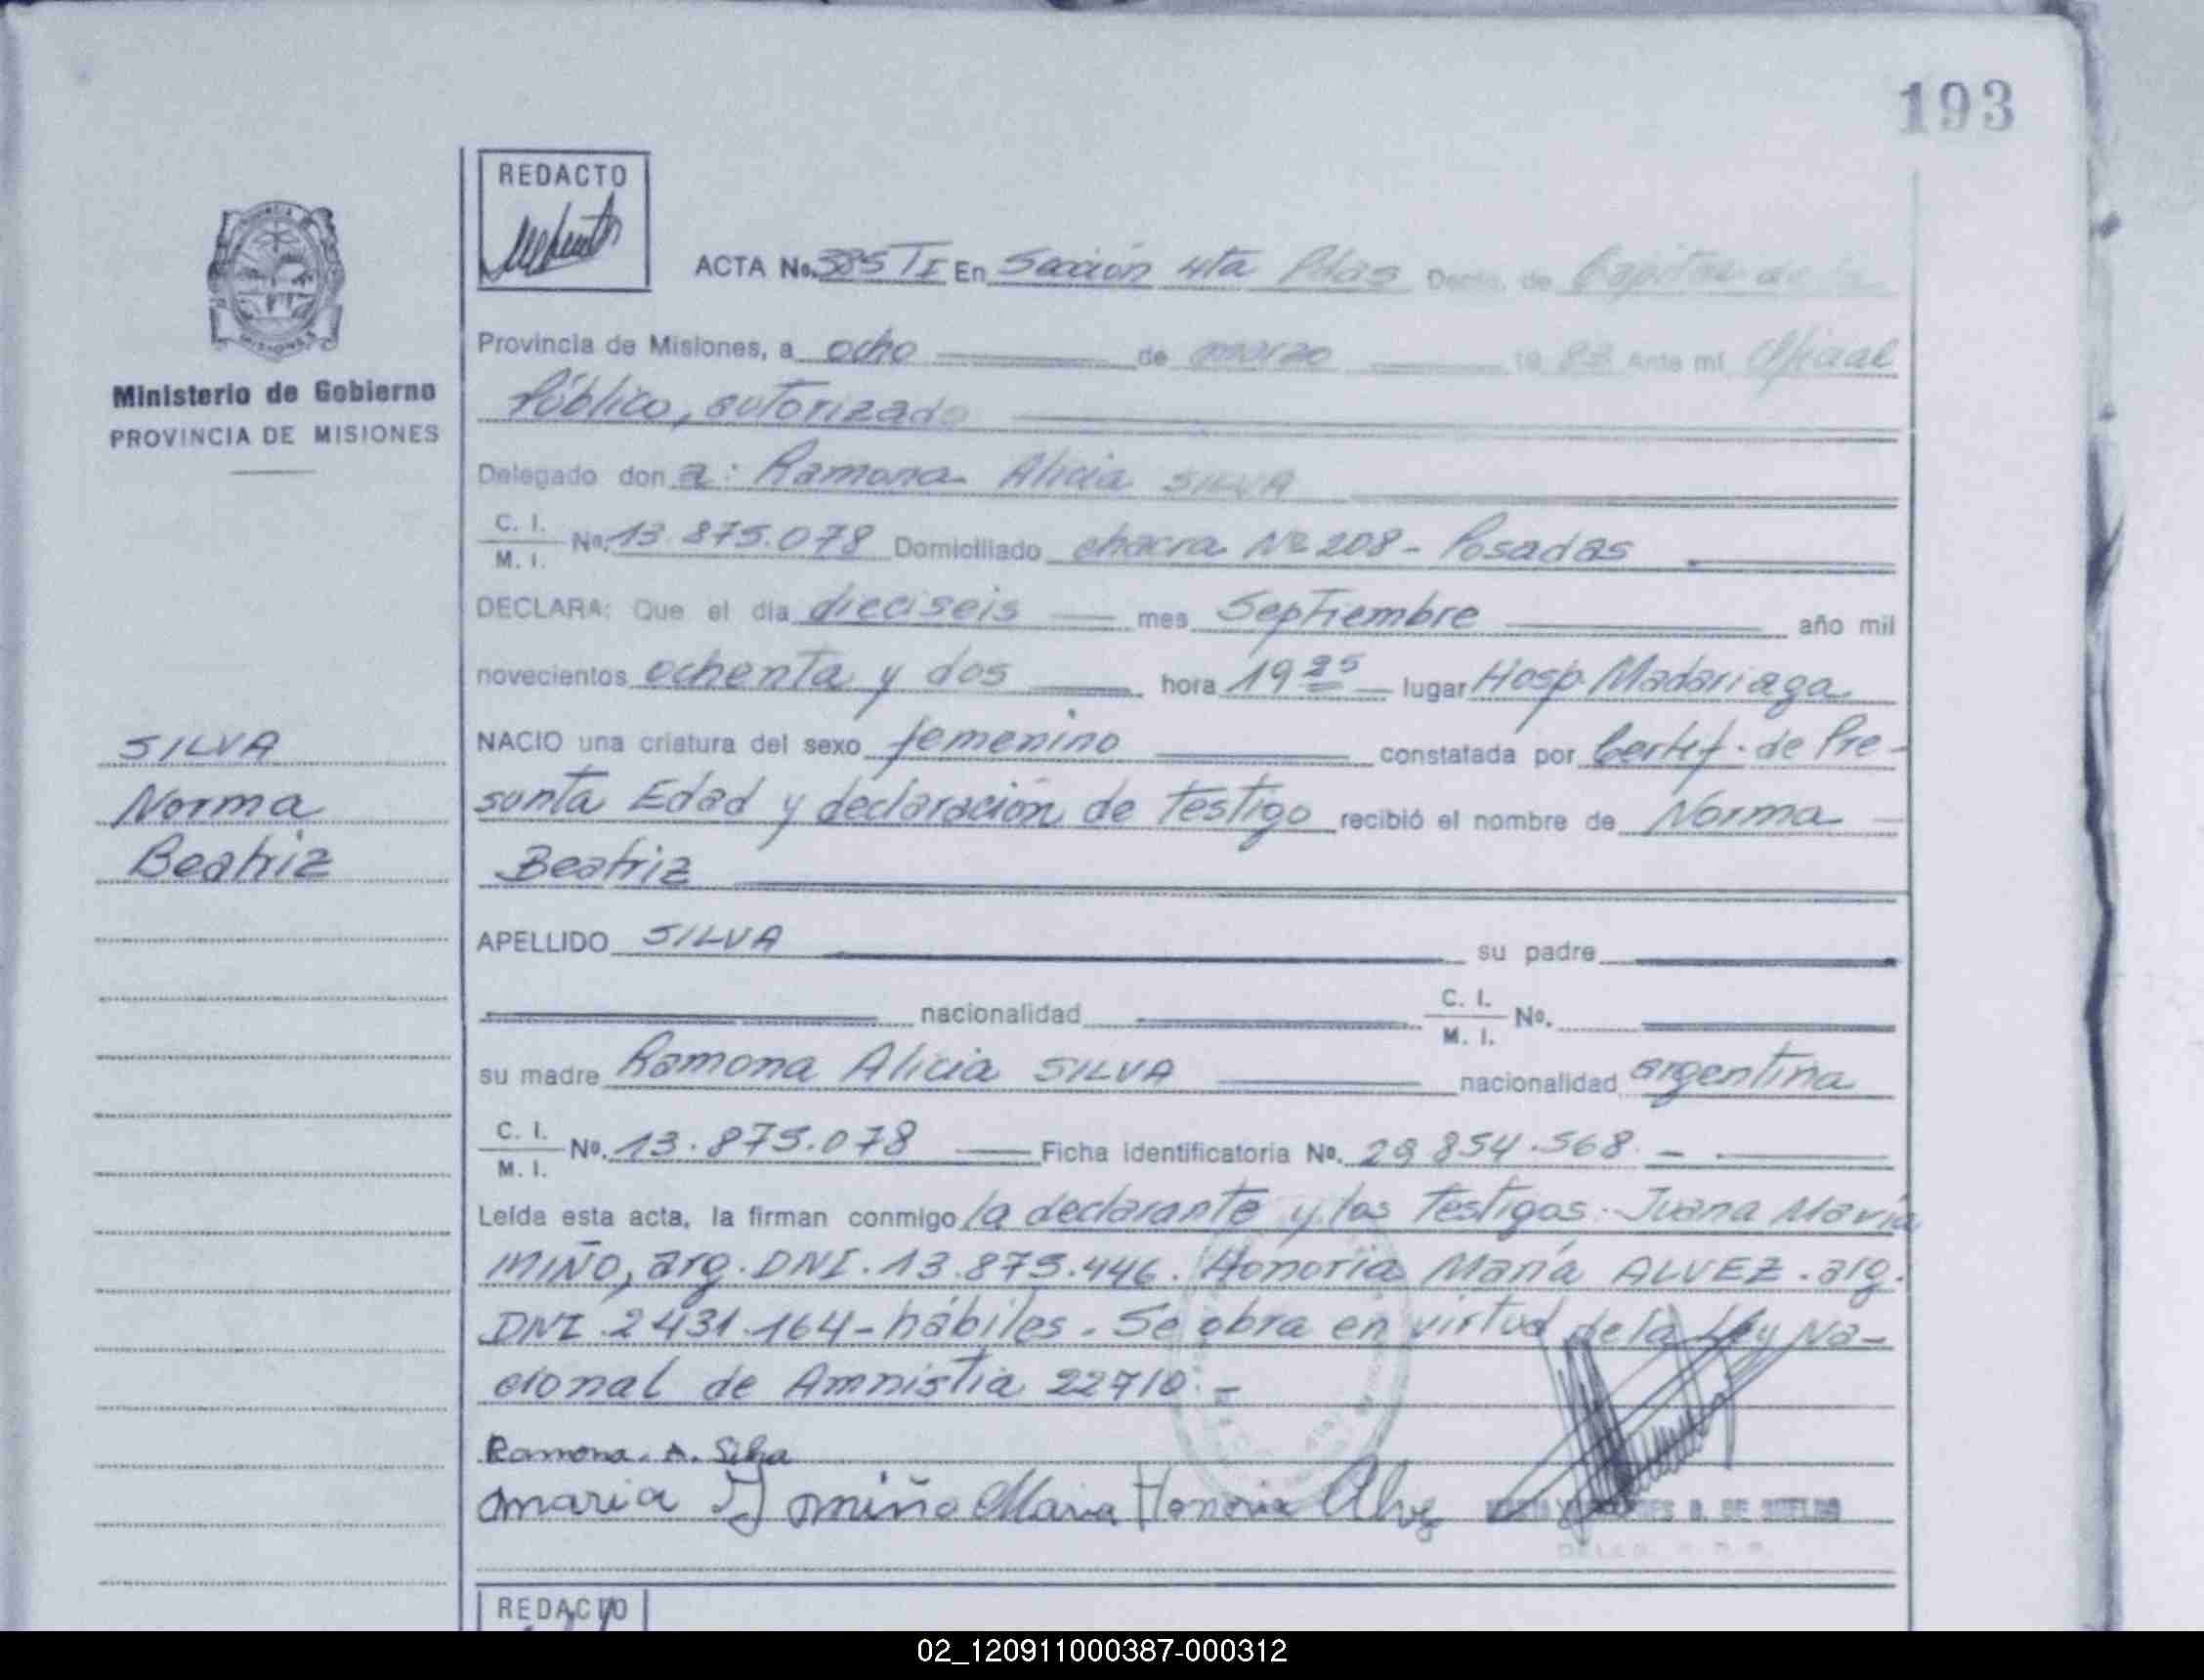 193
REDACTO
ACTA No. 385 TI En Sección 4ta Pdas Depto. de Capital de la
Provincia de Misiones, a ocho de marzo 1983 Ante mí Oficial
Público, autorizado
Ministerio de Gobierno
PROVINCIA DE MISIONES
Delegado don a: Ramona Alicia SILVA
C. I.
M. I. No. 13.875.078 Domiciliado chacra Nº 208 - Posadas
DECLARA: Que el día dieciseis mes Septiembre año mil
novecientos ochenta y dos hora 19 25 lugar Hosp. Madariaga
NACIO una criatura del sexo femenino constatada por Certif. de Pre-
sunta Edad y declaración de testigo recibió el nombre de Norma
Beatriz
SILVA
Norma
Beatriz
APELLIDO SILVA su padre
nacionalidad C. I.
M. I. No.
su madre Ramona Alicia SILVA nacionalidad argentina
C. I.
M. I. No. 13.875.078 Ficha identificatoria No. 29 854.568.-
Leída esta acta, la firman conmigo la declarante y los testigos. Juana María
MIÑO, arg. DNI. 13.875.446. Honoria María ALVEZ. arg.
DNI. 2431.164 - hábiles. Se obra en virtud de la Ley Na-
cional de Amnistia 22710.-
Ramona. A. Silva
maria J miño Maria Honoria Alvez
REDACTO
02_120911000387-000312